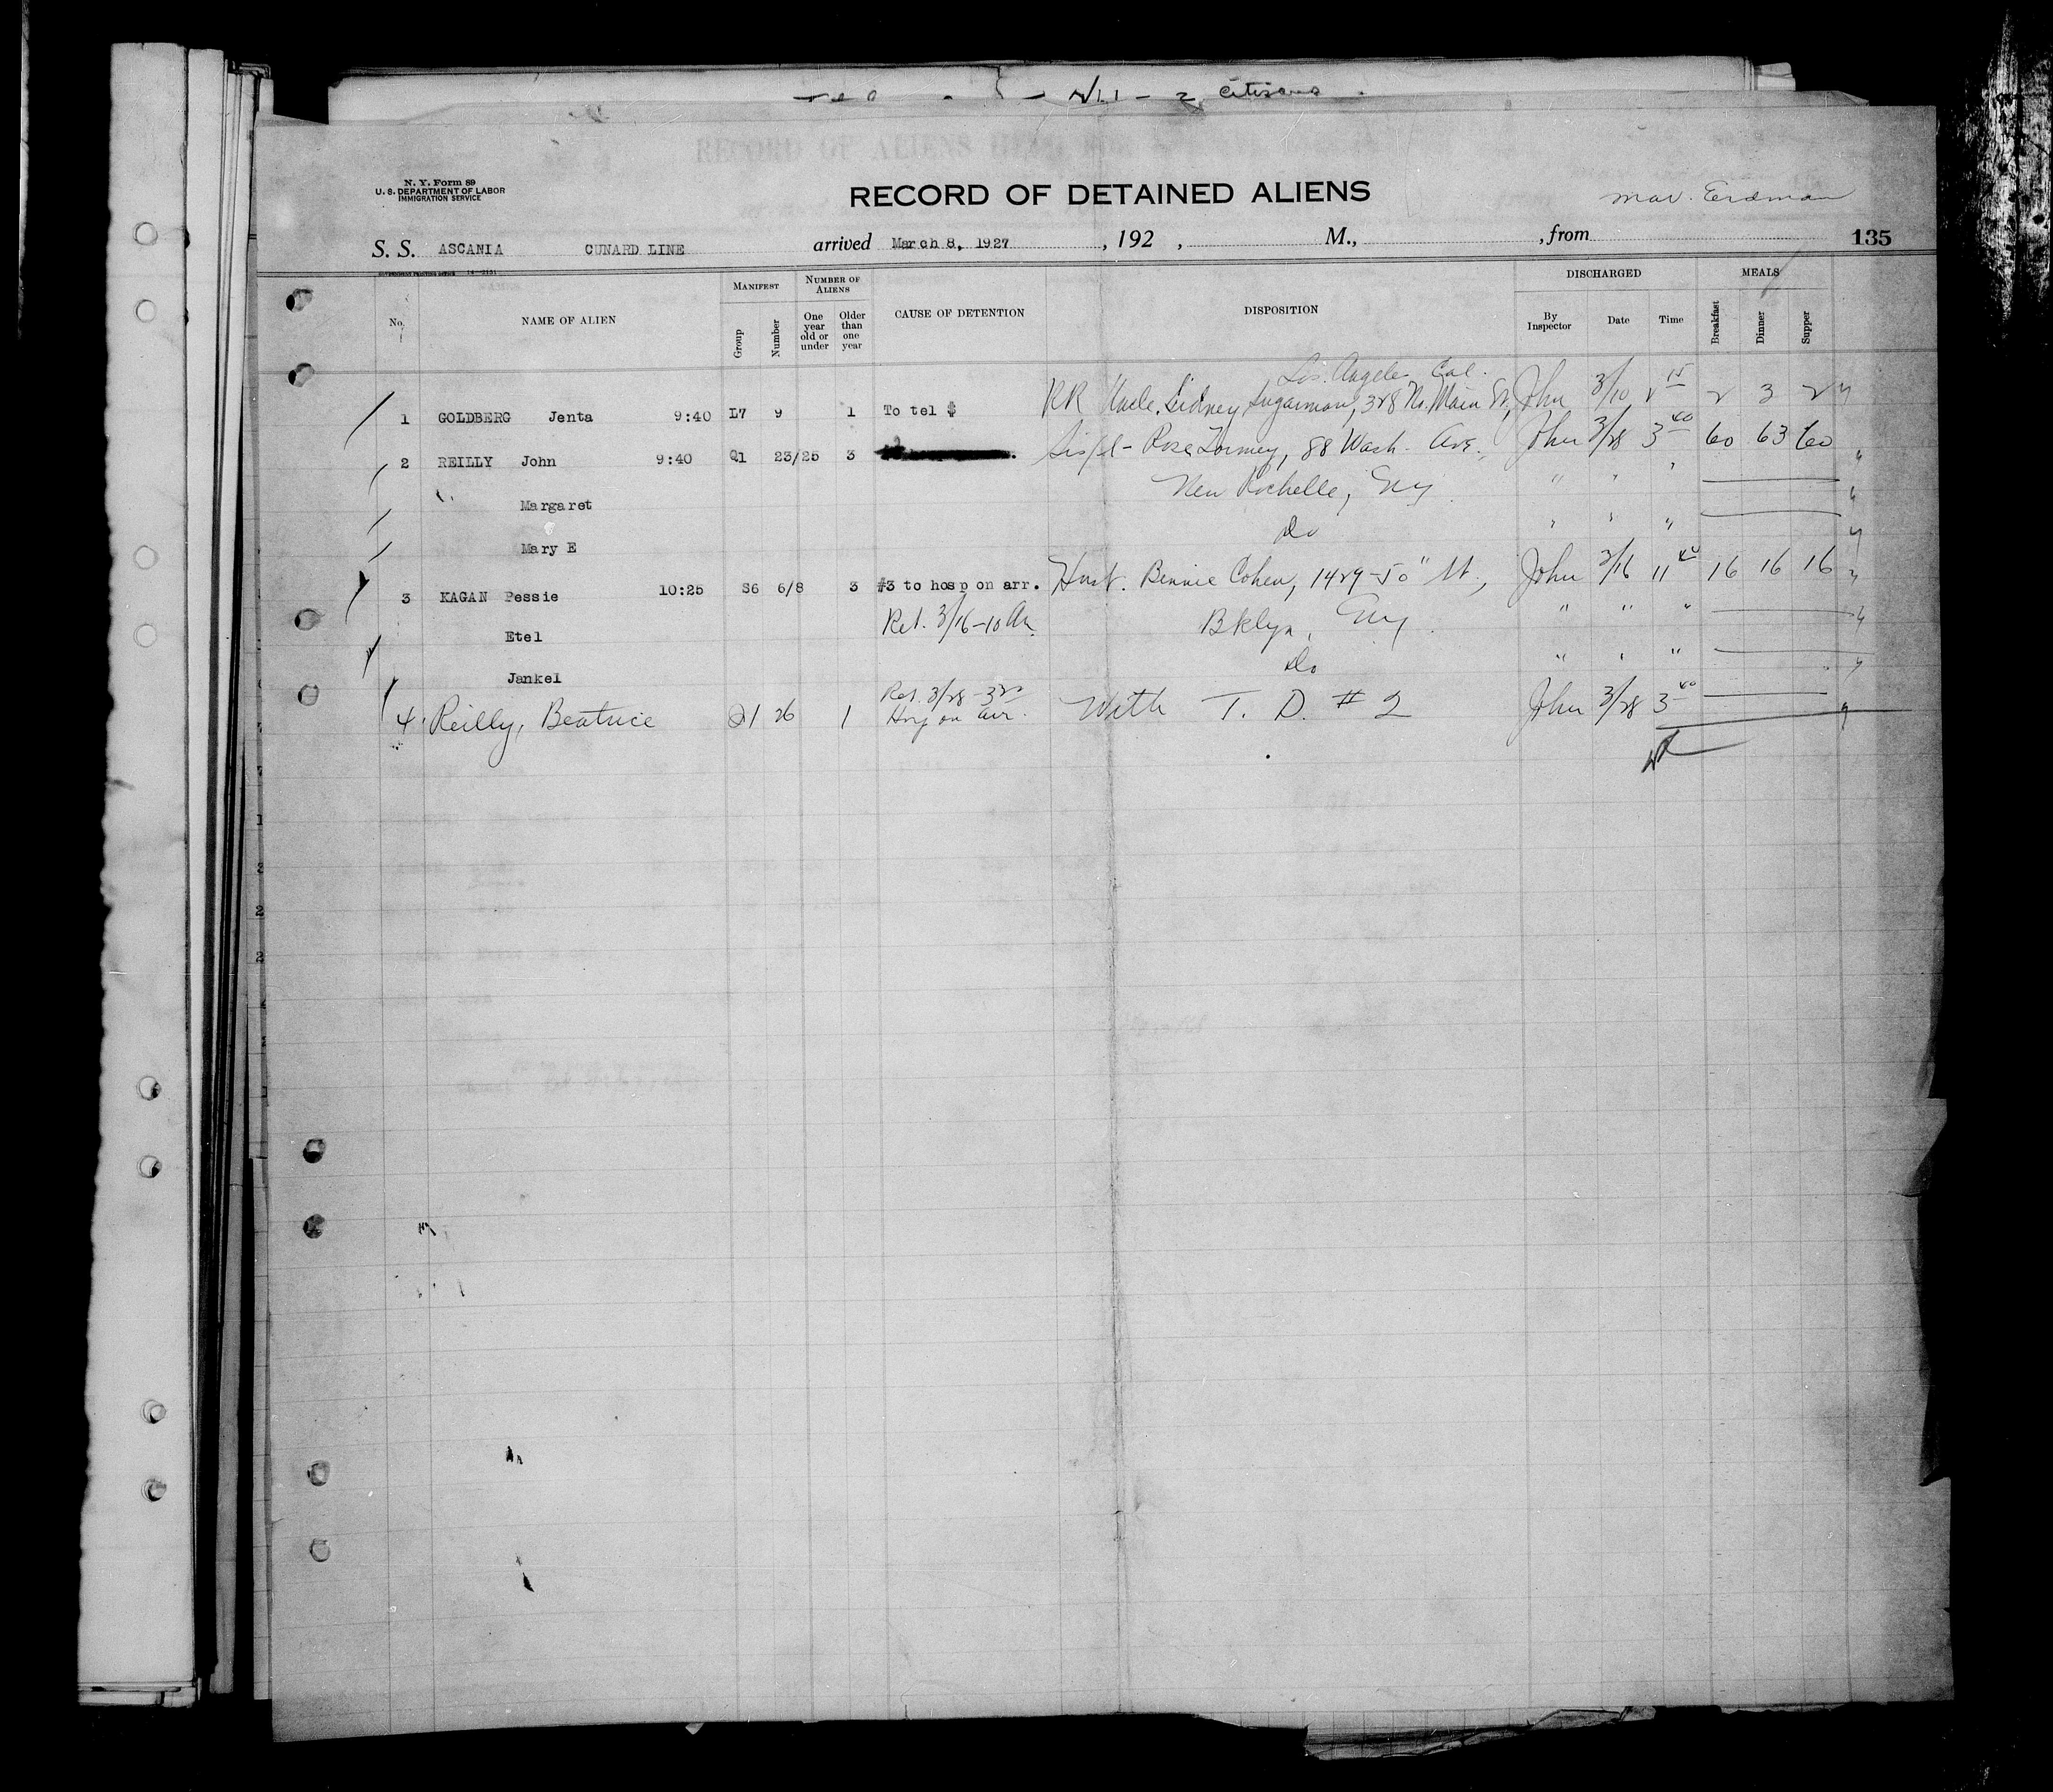 2 Citizens
N. Y. Form 89
U. S. DEPARTMENT OF LABOR
IMMIGRATION SERVICE
RECORD OF DETAINED ALIENS
Erdman
S. S. ASCANIA CUNARD LINE arrived March 8, 1927, 192 , M., , from 135
No. NAME OF ALIEN MANIFEST Group Number NUMBER OF ALIENS One year old or under Older than one year CAUSE OF DETENTION DISPOSITION DISCHARGED By Inspector Date Time MEALS Breakfast Dinner Supper
Los Angeles Cal.
1 GOLDBERG Jenta 9:40 L7 9 1 To tel $ RR Uncle, Sidney Sugarman, 328 No. Main St, John 3/10 2 15 2 3 2
2 REILLY John 9:40 Q1 23/25 3 Rose Tormey, 88 Wash. Ave., John 3/28 3 40 60 63 60
Margaret New Rochelle, NY " " "
Mary E Do " " "
3 KAGAN Pessie 10:25 S6 6/8 3 #3 to hosp on arr. Husb. Bennie Cohen, 1429-50" St., John 3/16 11 40 16 16 16
Etel Ret. 3/16-10 AM Bklyn, NY. " " "
Jankel Do " " "
Ret. 3/28 - 3 20
4 Reilly, Beatrice Q1 26 1 Hosp on arr. With T. D. # 2 John 3/28 3 40